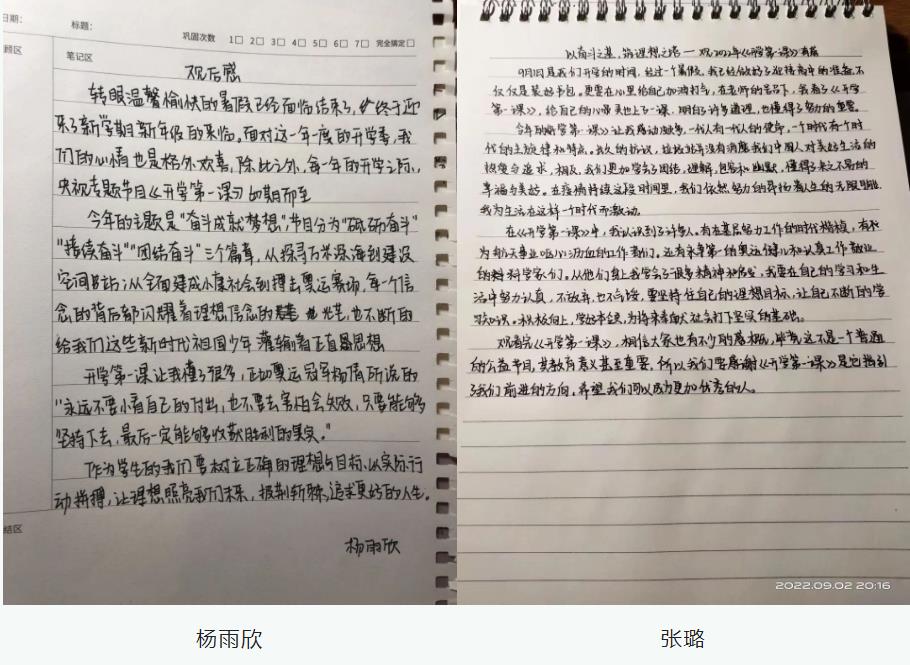 日期：
标题：
巩固次数 1□ 2□ 3□ 4□ 5□ 6□ 7□ 完全搞定□
顾区
笔记区
观后感
转眼温馨愉快的暑假已经面临结束了，终于迎
来了新学期新年级的来临。面对这一年度的开学季，我
们的心情也是格外欢喜，除此之外，每一年的开学之际，
央视专题节目《开学第一课》如期而至
今年的主题是“奋斗成就梦想”，节目分为“砥砺奋斗”
“接续奋斗”“团结奋斗”三个篇章，从探寻万米深海到建设
空间站；从全面建成小康社会到搏击奥运赛场，每一个信
念的背后都闪耀着理想信念的光芒，也不断的
给我们这些新时代祖国少年灌输着正直思想
开学第一课让我懂了很多，正如奥运冠军杨倩所说的
“永远不要小看自己的付出，也不要去害怕会失败，只要能够
坚持下去，最后一定能够收获胜利的果实。”
作为学生的我们要树立正确的理想与目标，以实际行
动拼搏，让理想照亮我们未来，披荆斩棘，追求更好的人生。
结区
杨雨欣
以奋斗之基，筑理想之塔—观2022年《开学第一课》有感
9月1日是我们开学的时间，经过一个暑假，我已经做好了迎接高中的准备，不
仅仅是装好书包。更要在心里给自己加油打气，在老师的号召下，我看了《开学
第一课》，给自己的心灵美也上了一课，明白了许多道理，也懂得了努力的重要。
今年的开学第一课》让我感动颇多，一代人有一代人的使命，一个时代有个时
代的主旋律和特点。永久的抗议，
热爱与追求，相反，我们更加学会了团结，理解，包容和幽默，懂得来之不易的
幸福与美好。在疫情持续这段时间里，我们依然努力的昂扬着人生的无限明媚，
我为生活在这样一个时代而激动。
在《开学第一课》中，我认识到了许多人。有在基层努力工作的时代楷模，有我
为航天事业呕心沥血的工作者们。还有来拿第一的奥运健儿和认真工作敬业
的科学家们。从他们身上我学会了很多精神和信念，我要在自己的学习和生
活中努力认真，不放弃，也不气馁，要坚持住自己的理想目标，让自己不断的学
习知识。积极向上，学好本领，为将来看向大社会打下坚实的基础。
观看完《开学第一课》，相信大家也有不少的感概，毕竟这不是一个普通
的公益节目，其教育意义甚至重要，所以我们要感谢《开学第一课》是它指引
了我们前进的方向，希望我们可以成为更加优秀的人。
2022.09.02 20:16
杨雨欣
张璐